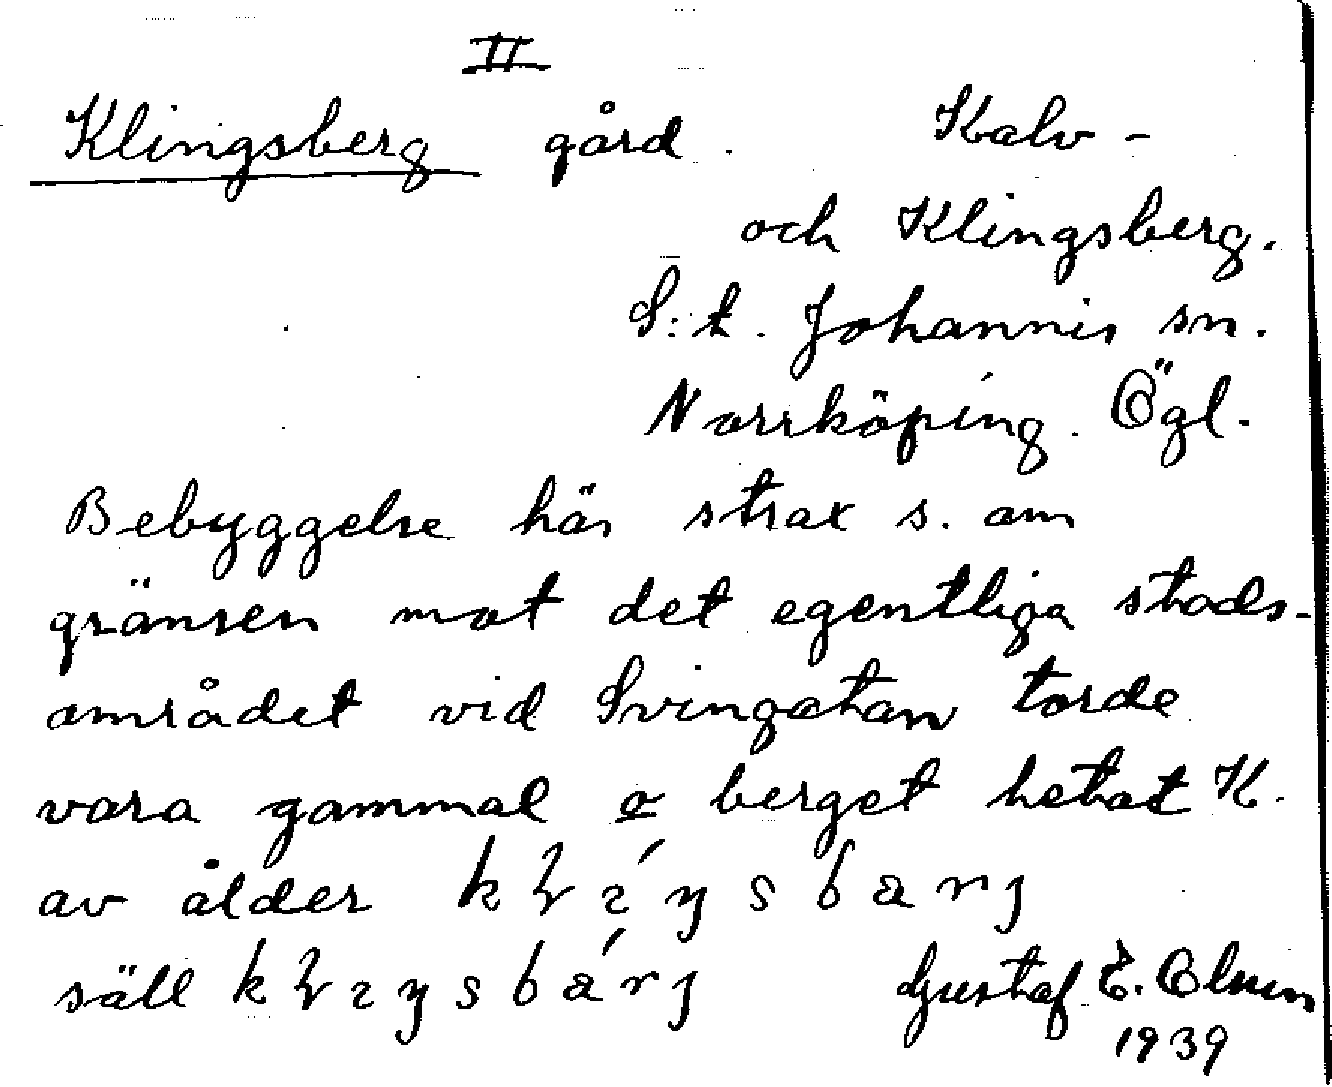 II
Klingsberg gård. Kalv-
och Klingsberg.
S:t. Johannis sn.
Norrköping. Ögl.
Bebyggelse här strax s. om
gränsen mot det egentliga stads-
området vid Svingatan torde
vara gammal o berget hetat K.
av ålder
säll Gustaf E. Olsson
1939